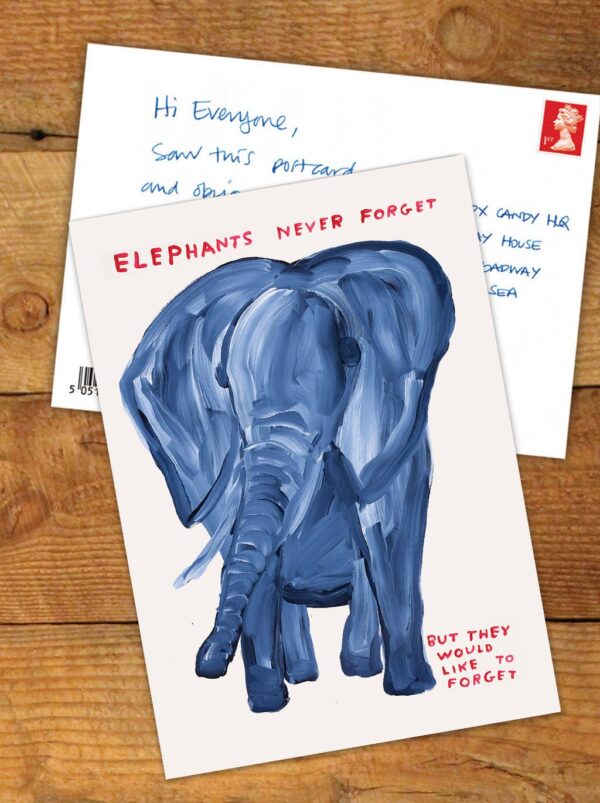 Hi Everyone,
Saw this postcard
and
1ST
CANDY HQ
HOUSE
SEA
5 051
ELEPHANTS NEVER FORGET
BUT THEY
WOULD
LIKE TO
FORGET